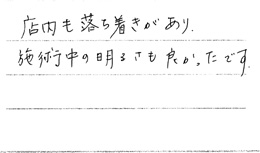 店内も落ち着きがあり.
施術中の明るさも良かったです.